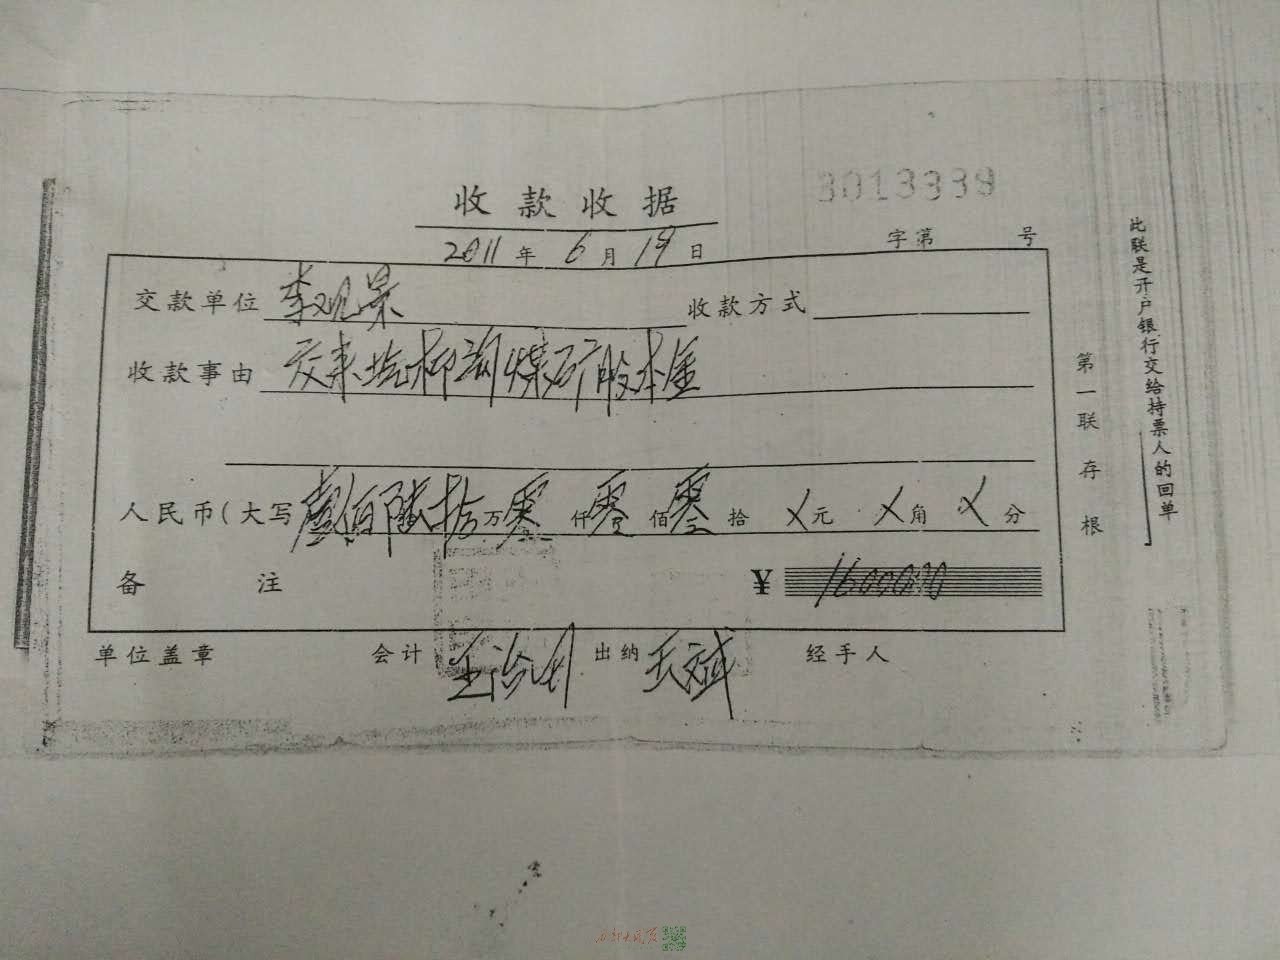 收款收据
3013339
2011年6月19日
字第 号
交款单位 李观景 收款方式
收款事由 交来 柳沟煤矿股本金
人民币(大写 壹佰陆拾万零仟零佰零拾 X元 X角 X分
备注 ¥ 1600000
单位盖章 会计 王治 出纳 王斌 经手人
第一联存根
此联是开户银行交给持票人的回单